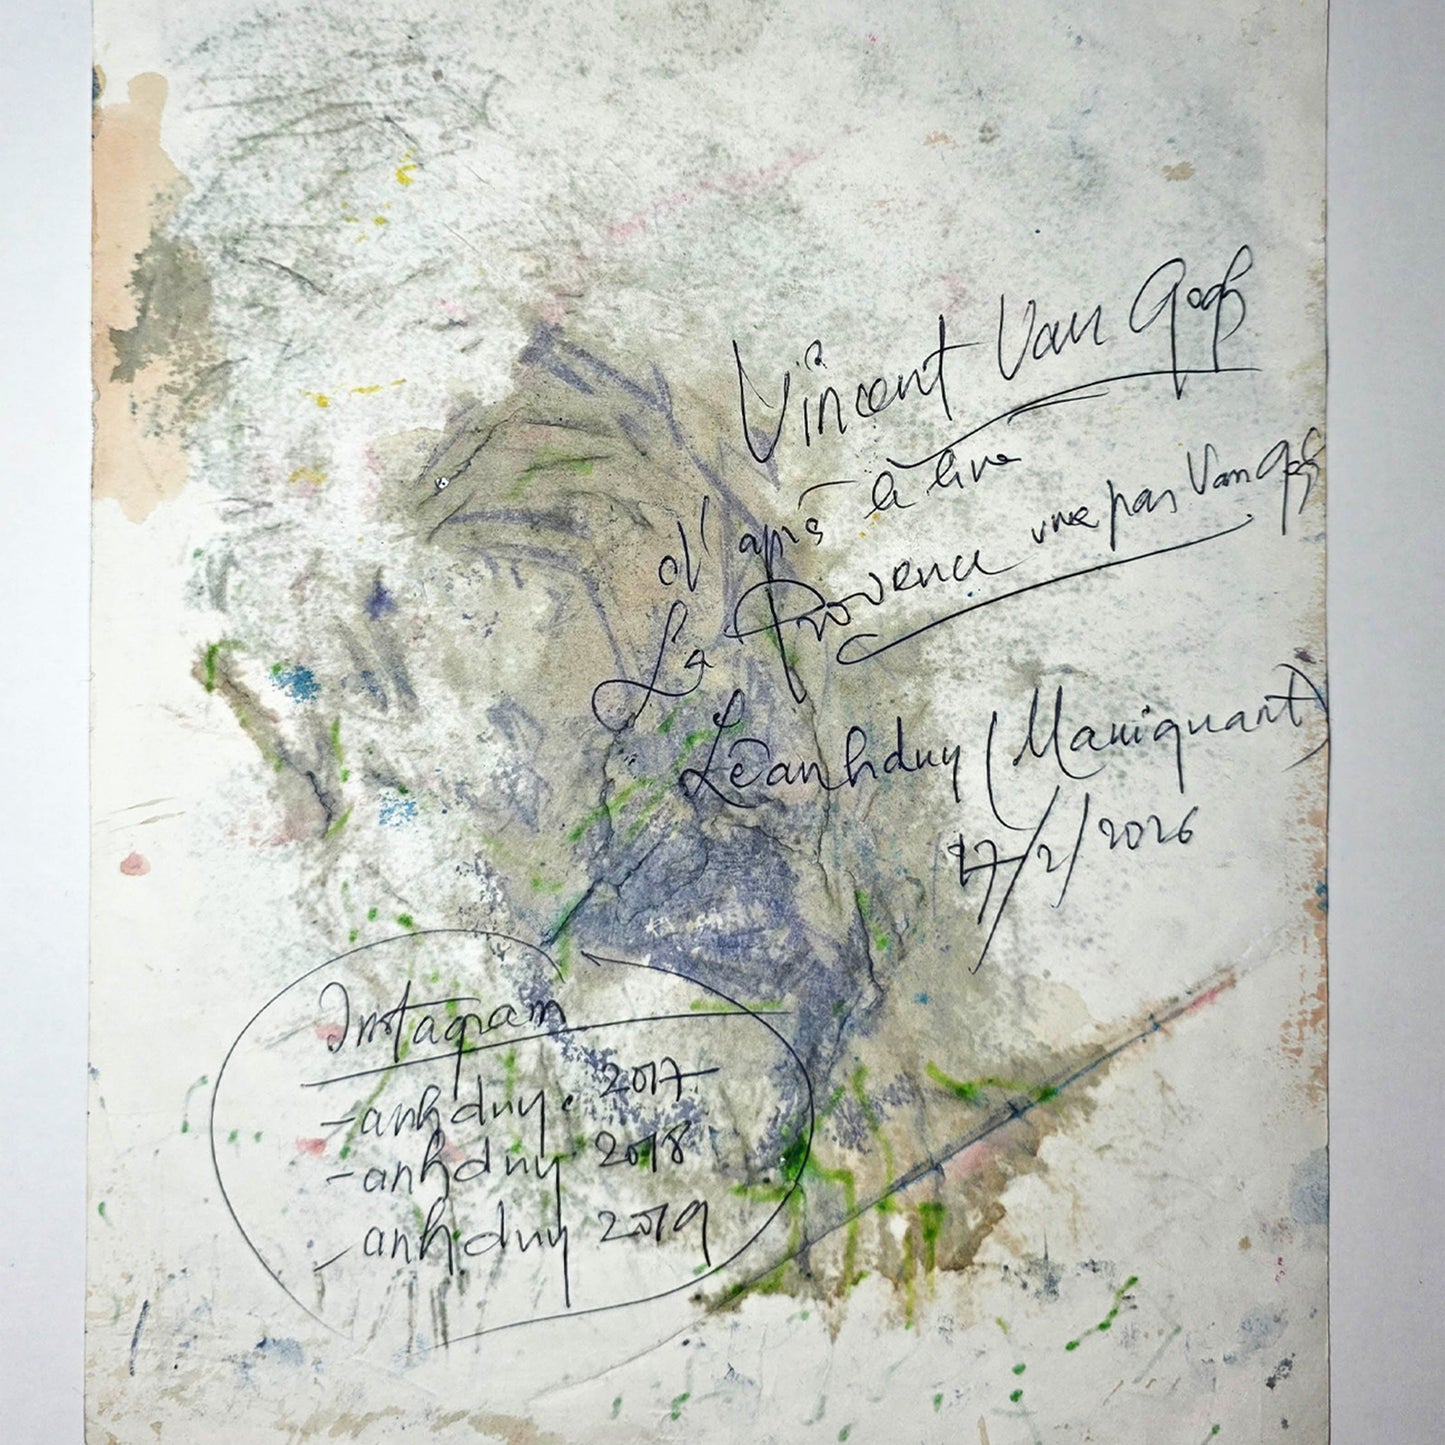 Vincent Van Gogh
d'après le livre
La Provence vue par Van Gogh
Lêanhduy (Maniquant)
17/2/2026
Instagram
- anhduy. 2017
- anhduy 2018
- anhduy 2019